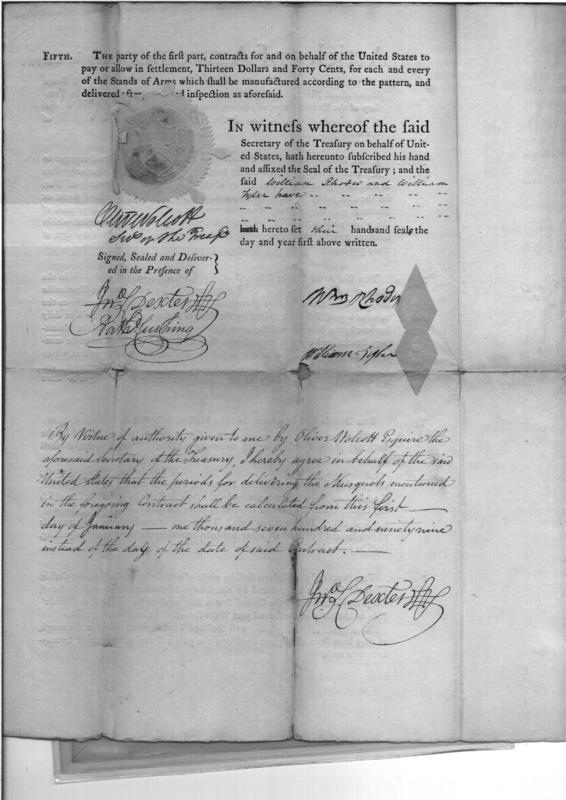 FIFTH. THE party of the firſt part, contracts for and on behalf of the United States to
pay or allow in ſettlement, Thirteen Dollars and Forty Cents, for each and every
of the Stands of Arms which ſhall be manufactured according to the pattern, and
delivered after inſpection as aforeſaid.
IN witneſs whereof the ſaid
Secretary of the Treaſury on behalf of Unit-
ed States, hath hereunto ſubſcribed his hand
and affixed the Seal of the Treaſury; and the
ſaid William Rhodes and William
Tyler have
hath hereto ſet their hands and ſeals the
day and year firſt above written.
Oliv Wolcott
Secy of the Treasy
Signed, Sealed and Deliver-
ed in the Preſence of
Jno S Dexter
Nath Cushing
Wm Rhodes
William Tyler
By Virtue of authority given to me by Oliver Wolcott Esquire the
aforesaid Secretary of the Treasury, I hereby agree in behalf of the said
United States that the periods for delivering the Musquets mentioned
in the foregoing Contract shall be calculated from this first
day of January — one thousand seven hundred and ninety nine
instead of the day of the date of said Contract.
Jno S Dexter